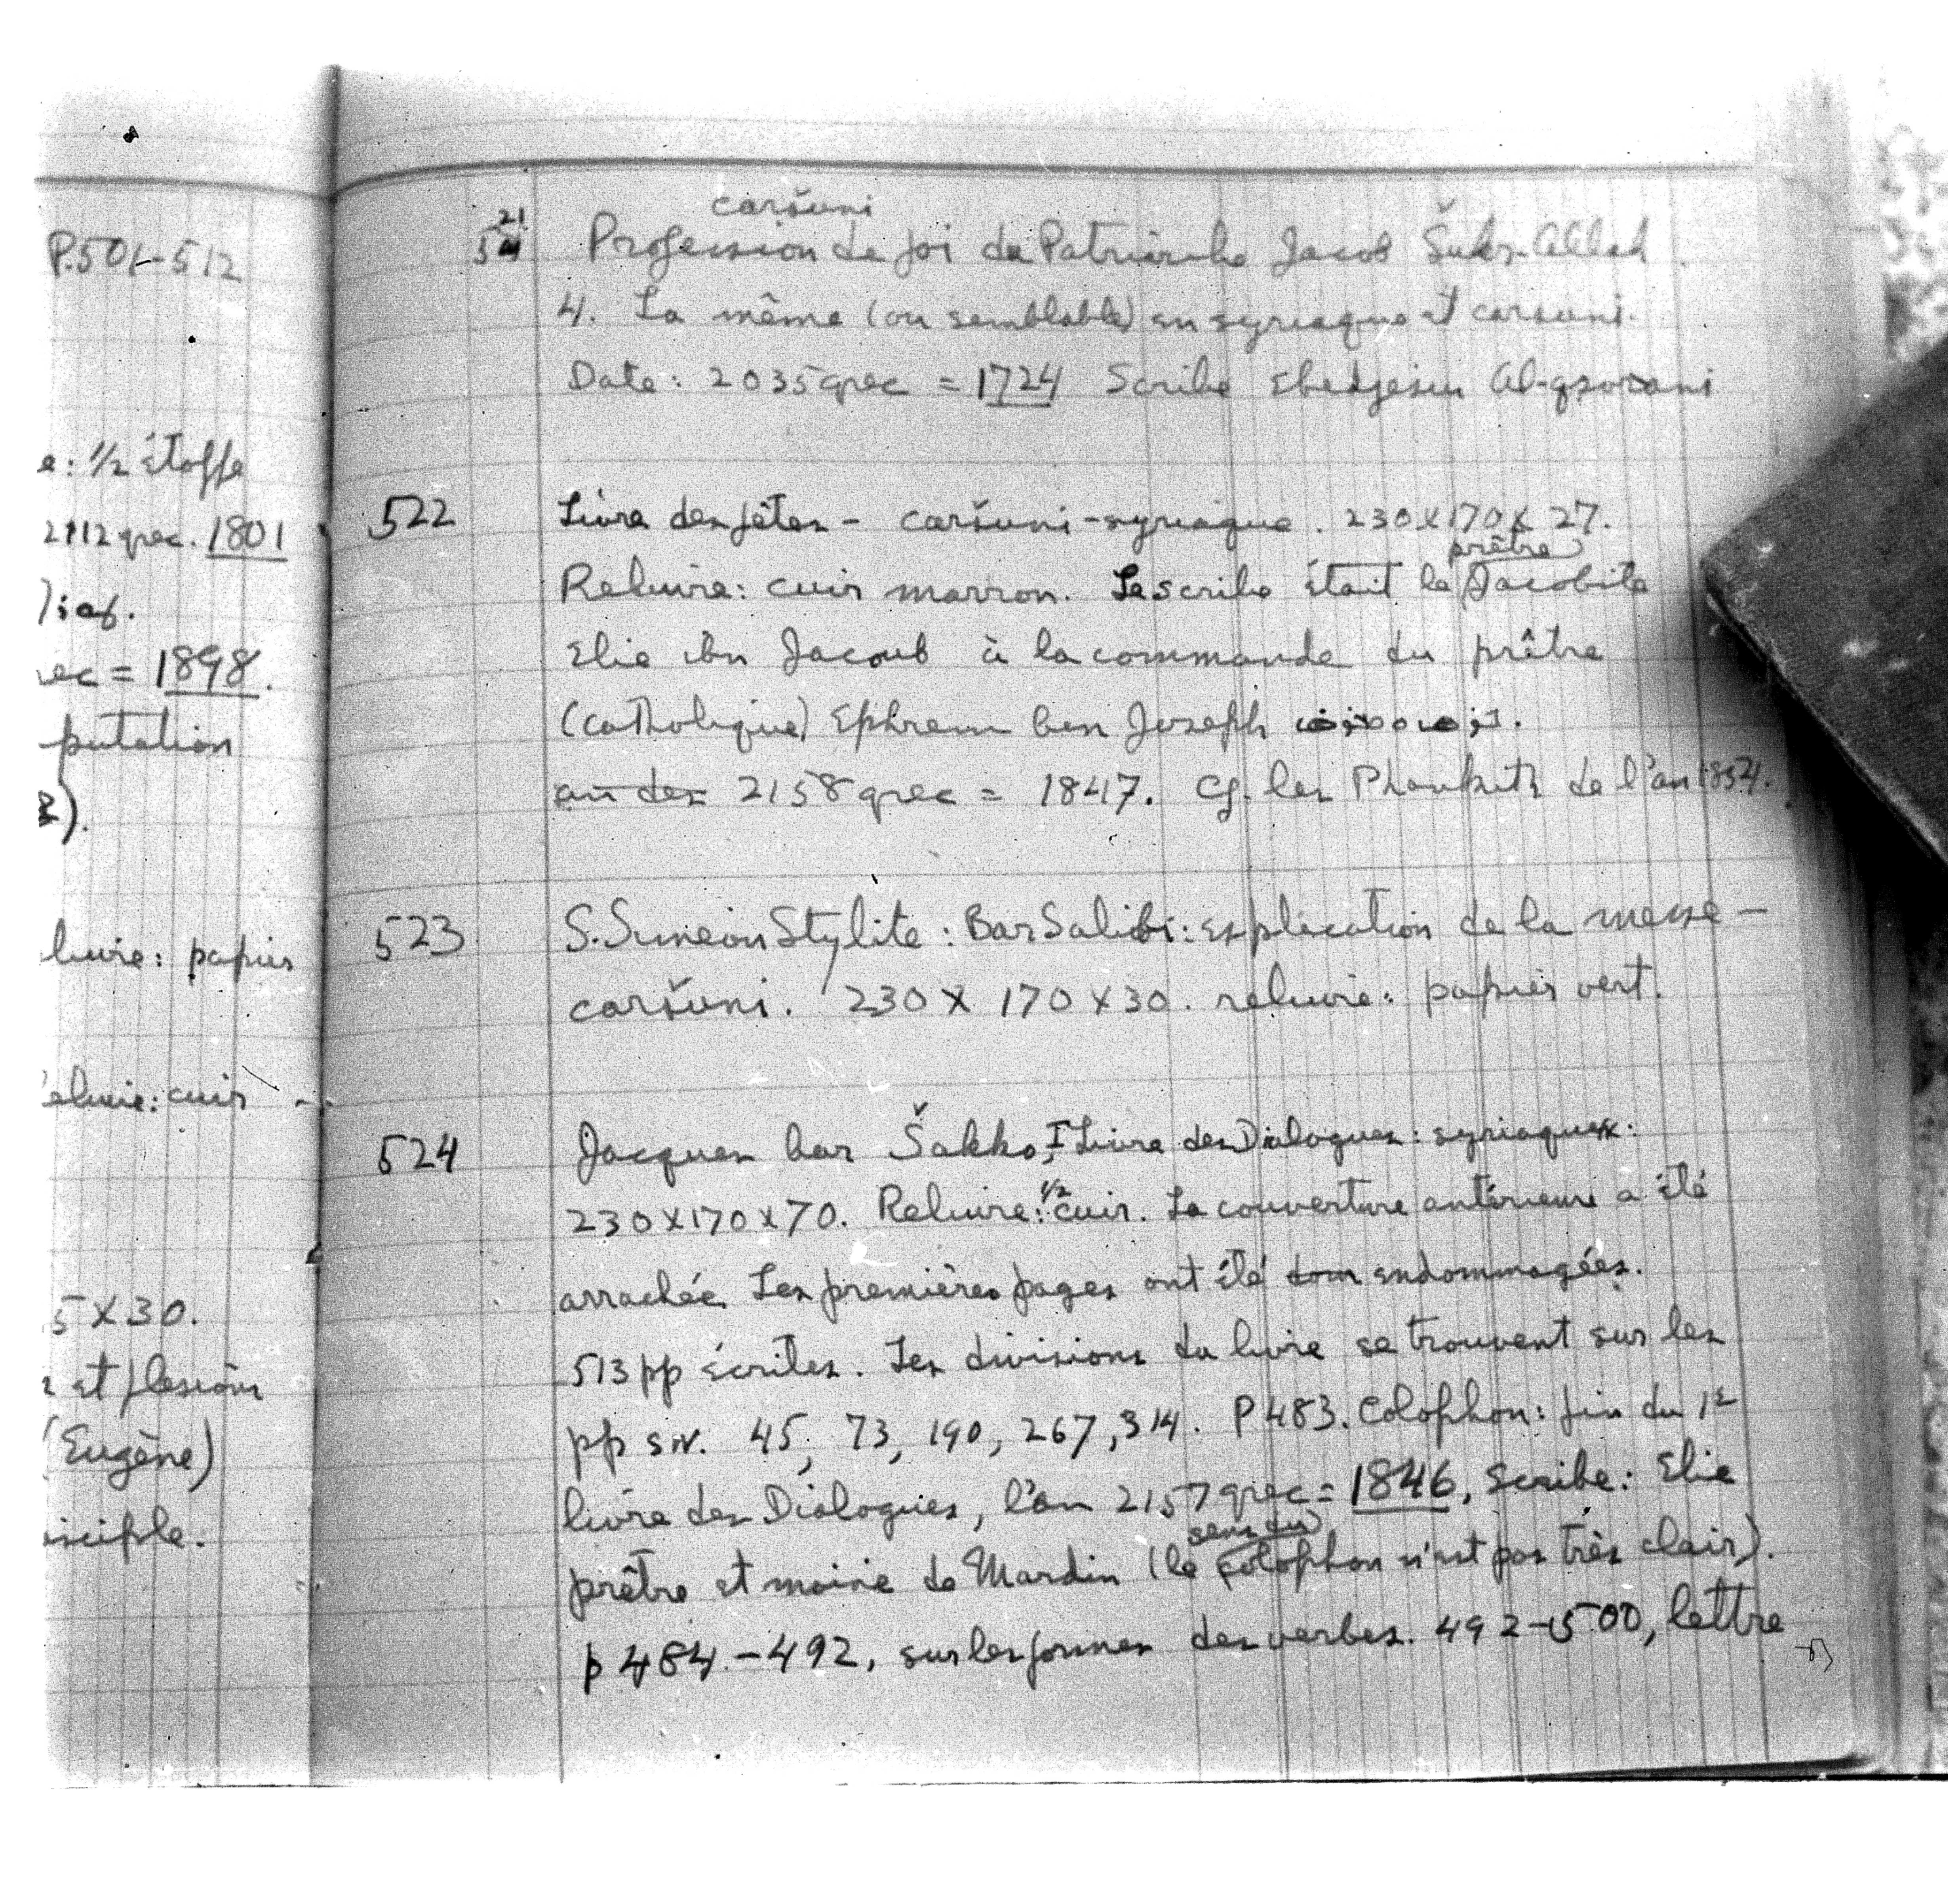 P.501-512
e: 1/2 étoffe
2112 grec. 1801
ec = 1898.
putation
luire: papier
eluire: cuir
5 X 30.
et flexion
(Eugène)
isciple.
caršuni
521 Profession de foi de Patriarche Jacob Šukr-Allah
4. La même (ou semblable) en syriaque et caršuni.
Date: 2035 grec = 1724 Scribe Ebedjesu Al-qsorani
522 Livre des fêtes - caršuni-syriaque. 230 X 170 X 27.
prêtre
Reluire: cuir marron. Le scribe était le Jacobite
Elie ibn Jacoub à la commande du prêtre
(catholique) Ephrem ben Joseph
an des 2158 grec = 1847. Cf. les Phankith de l'an 1854.
523 S. Simeon Stylite: Bar Salibi: explication de la messe -
caršuni. 230 X 170 X 30. reluire: papier vert.
524 Jacques bar Šakko, I Livre des Dialogues: syriaque:
230 X 170 X 70. Reluire: 1/2 cuir. La couverture antérieure a été
arrachée. Les premières pages ont été endommagées.
513 pp écrites. Les divisions du livre se trouvent sur les
pp siv. 45, 73, 190, 267, 314. P 483. Colophon: fin du 1e
livre des Dialogues, l'an 2157 grec = 1846, Scribe: Elie
sens du
prêtre et moine de Mardin (le colophon n'est pas très clair).
p 484.-492, sur les formes des verbes. 492-500, lettre